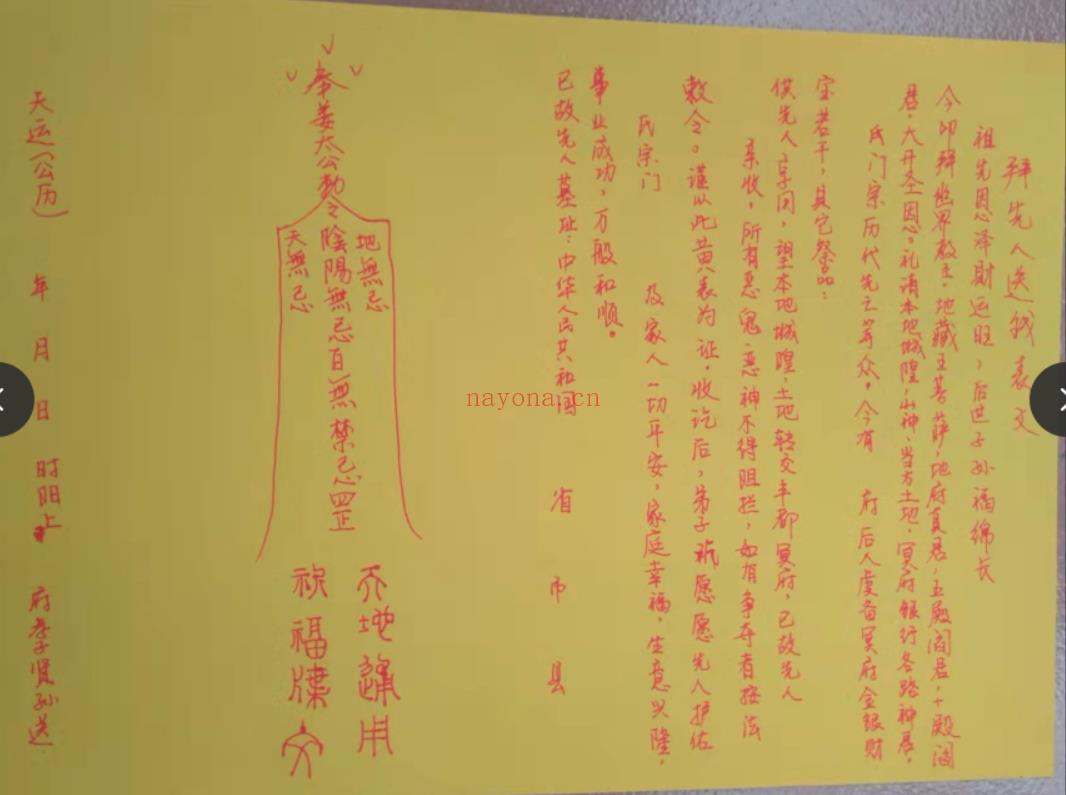 拜先人送钱表文
祖先恩泽财运旺，后世子孙福绵长
今叩拜幽界教主，地藏王菩萨，地府真君，五殿阎君，十殿阎
君，大开圣恩。礼请本地城隍，山神，当方土地，冥府银行各路神君，
氏门宗历代先亡等众，今有 府后人虔备冥府金银财
宝若干，其它祭品：
供先人享用，望本地城隍，土地转交丰都冥府，已故先人
亲收，所有恶鬼，恶神不得阻拦，如有争夺者按法
敕令。谨以此黄表为证，收讫后，弟子祈愿愿先人护佑
氏宗门 及家人一切平安，家庭幸福，生意兴隆，
事业成功，万般和顺。
已故先人墓址：中华人民共和国 省 市 县
奉姜太公勅令
地無忌
陰陽無忌百無禁忌罡
天無忌
天地通用
祝福牒文
天运（公历） 年 月 日 时阳上 府孝子贤孙送
nayona.cn